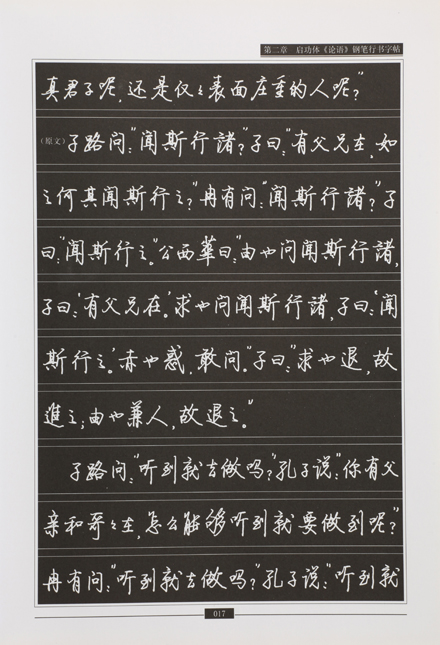 第二章 启功体《论语》钢笔行书字帖
真君子呢，还是仅仅表面庄重的人呢？”
（原文）子路问：“闻斯行諸？”子曰：“有父兄在，如
之何其闻斯行之？”冉有问：“闻斯行諸？”子
曰：“闻斯行之。”公西華曰：“由也问闻斯行諸，
子曰：‘有父兄在。’求也问闻斯行諸，子曰：‘闻
斯行之。’赤也惑，敢问。”子曰：“求也退，故
進之；由也兼人，故退之。”
子路问：“听到就去做吗？”孔子说：“你有父
亲和哥哥在，怎么能够听到就要做到呢？”
冉有问：“听到就去做吗？”孔子说：“听到就
017